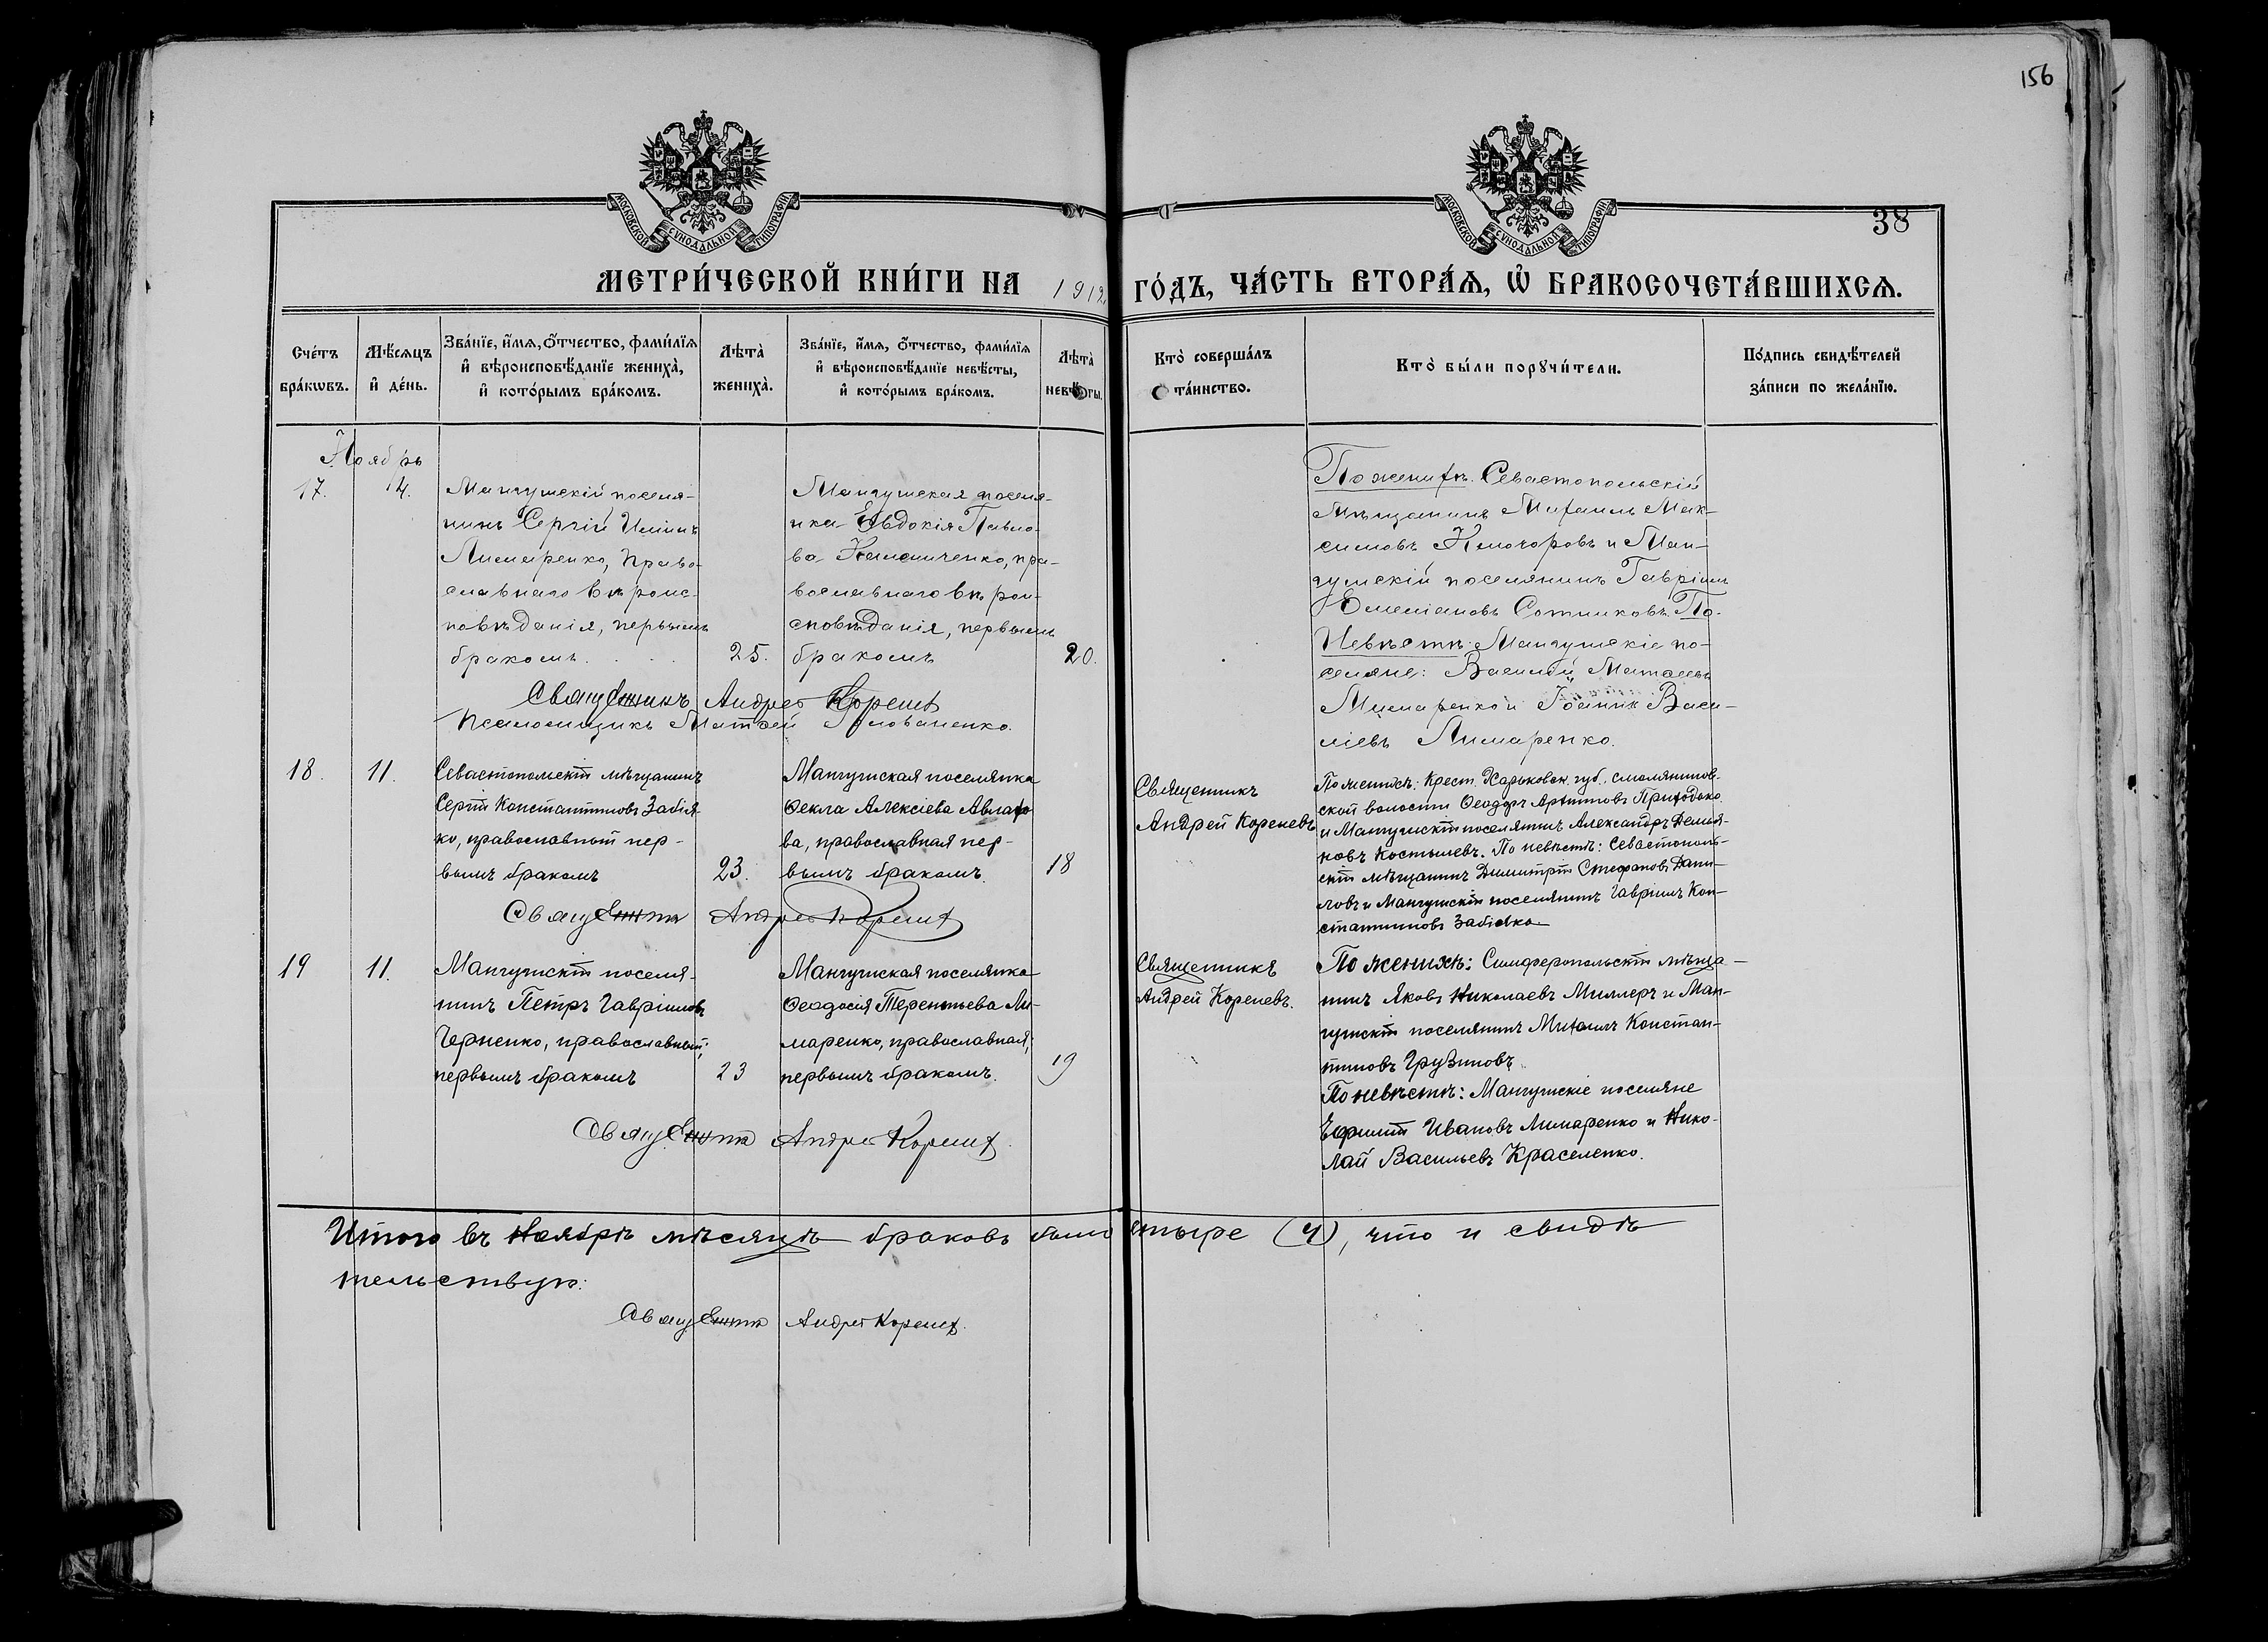 156
МОСКОВСКОЙ СѴНОДАЛЬНОЙ ТИПОГРАФІИ
МОСКОВСКОЙ СѴНОДАЛЬНОЙ ТИПОГРАФІИ
38
МЕТРИ́ЧЕСКОЙ КНИ́ГИ НА 1912 ГО́ДЪ, ЧА́СТЬ ВТОРА́Ѧ, Ѽ БРАКОСОЧЕТА́ВШИХСѦ.
Сче́тъ бра́кωвъ.
Мѣ́сѧцъ и҆ де́нь.
Зва́нїе, и҆́мѧ, ѻ҆́тчество, фами́лїѧ и҆ вѣроисповѣ́данїе жениха̀, и҆ кото́рымъ бра́комъ.
Лѣта̀ жениха̀.
Зва́нїе, и҆́мѧ, ѻ҆́тчество, фами́лїѧ и҆ вѣроисповѣ́данїе невѣ́сты, и҆ кото́рымъ бра́комъ.
Лѣта̀ невѣ́сты.
Кто̀ соверша́лъ та́инство.
Кто̀ бы́ли порꙋчи́тели.
По́дпись свидѣ́телей за́писи по жела́нїю.
Ноябрь
17.
14.
Мангушскій поселя-
нинъ Сергій
Лимаренко, Право-
славнаго вѣроис-
повѣданія, первымъ
бракомъ.
25.
Мангушская поселя-
нка Евдокія Павло-
ва
пра-
вославнаго вѣрои-
сповѣданія, первымъ
бракомъ
20.
По женихѣ. Севастопольскій
мѣщанинъ Михаилъ Мак-
симовъ и Ман-
гушскій поселянинъ Гавріилъ
Емеліановъ Сотниковъ. По
Невѣстѣ: Мангушскіе по-
селяне: Василій
Лимаренко и Васи-
ліевъ Лимаренко.
Священникъ Андрей Кореневъ
Псаломщикъ Матѳей Голованенко.
18.
11.
Севастопольскій мѣщанинъ
Сергій Константиновъ Забія-
ко, православный пер-
вымъ бракомъ
23.
Мангушская поселянка
Ѳекла Алексіева
ва, православная пер-
вымъ бракомъ.
18
Священникъ
Андрей Кореневъ
По женихѣ: Крест. Харьковск. губ. смолянинов-
ской волости Ѳеодоръ Приходько
и Мангушскій поселянинъ Александръ Демья-
новъ Костылевъ. По невѣстѣ: Севастополь-
скій мѣщанинъ Димитрій Стефановъ Дани-
ловъ и Мангушскій поселянинъ Гавріилъ Кон-
стантиновъ Забіяко
Священникъ Андрей Кореневъ
19
11.
Мангушскій поселя-
нинъ Петръ Гавріиловъ
Черненко, православный;
первымъ бракомъ
23
Мангушская поселянка
Ѳеодосія Терентьева Ли-
маренко, православная;
первымъ бракомъ.
19
Священникъ
Андрей Кореневъ.
По женихѣ: Симферопольскій мѣща-
нинъ Яковъ Николаевъ Миллеръ и Ман-
гушскій поселянинъ Михаилъ Констан-
тиновъ Грузиновъ.
По невѣстѣ: Мангушскіе поселяне
Ефимій Ивановъ Лимаренко и Нико-
лай Васильевъ Краселенко.
Священникъ Андрей Кореневъ.
Итого въ Ноябрѣ мѣсяцѣ браковъ было четыре (4), что и свидѣ
тельствую:
Священникъ Андрей Кореневъ.